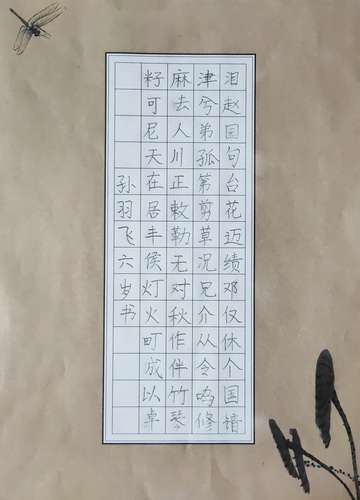 泪赵园句台花迈绩邓仅休个国
津兮弟孤第剪草况兄介从令鸣修
麻去人川正敕勒无对秋作伴竹琴
籽可尼天在居丰侯灯火町成以卓
孙羽飞六岁书